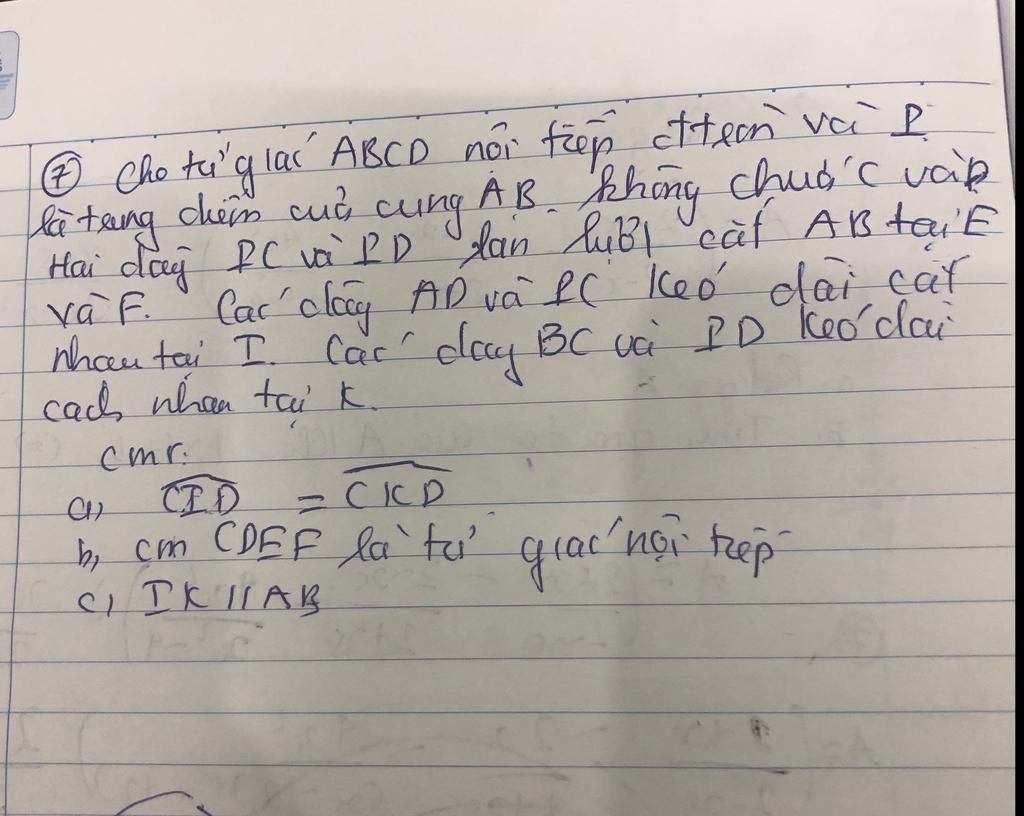 ⑦ Cho tứ giác ABCD nội tiếp đttròn và P
là trung điểm của cung AB không chứa C và D
Hai dây PC và PD lần lượt cắt AB tại E
và F. Các dây AD và PC kéo dài cắt
nhau tại I. Các dây BC và PD kéo dài
cách nhau tại K.
cmr.
a, CID = CKD
b, cm CDEF là tứ giác nội tiếp
c, IK // AB